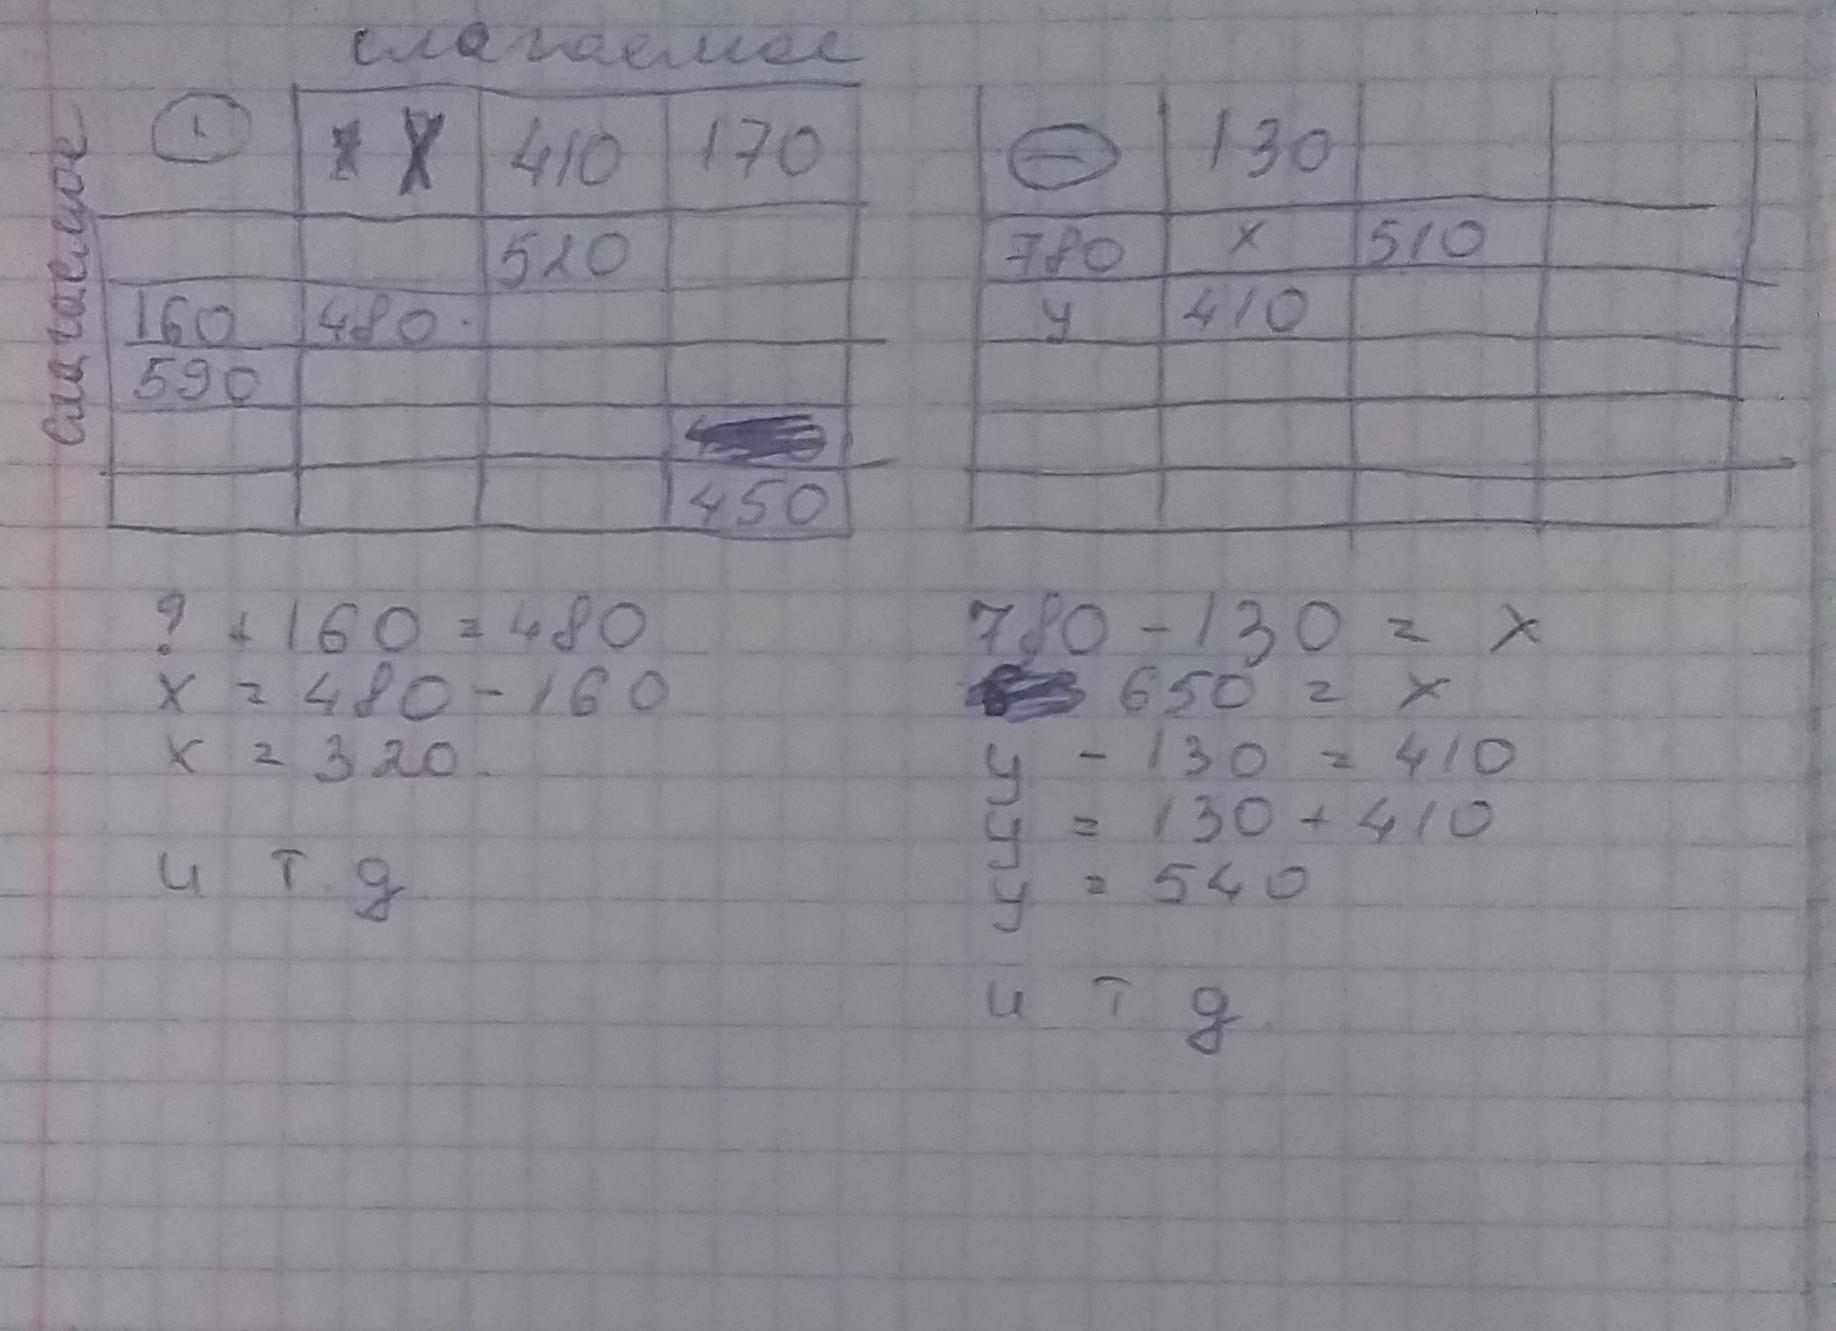 слагаемое
слагаемое
+ х 410 170
520
160 480
590
450
- 130
780 х 510
у 410
? + 160 = 480
х = 480 - 160
х = 320.
и т. д
780 - 130 = х
650 = х
у - 130 = 410
у = 130 + 410
у = 540
и т д.